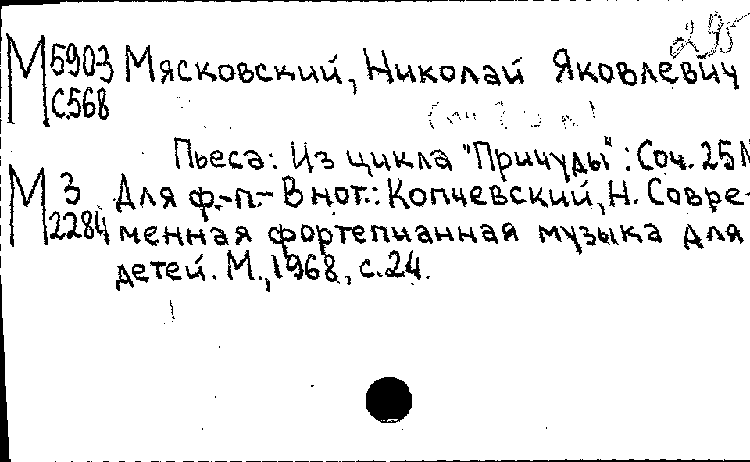 295
М 5903 Мясковский, Николай Яковлевич
С568
Пьеса: Из цикла "Причуды": Соч. 25 N
М 3 Для ф.-п.- В нот.: Копчевский, Н. Совре-
2284 менная фортепианная музыка для
детей. М., 1968, с. 24.